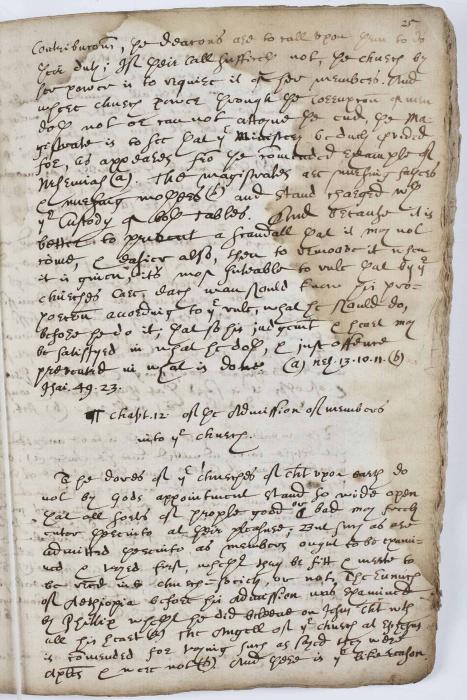 25
Contribution, the deacons are to call upon them to do
their duty; If their call sufficeth not, the church by
her power is to require it of her members. And
where church power through the corruption of men
doth not or can not attayne the end, the Ma-
gistrate is to see that ye Ministery be duly provided
for, as appeares fro the comended example of
Nehemiah (a). The magistrates are nursing fathers
& nursing mothers (b) and stand charged with
ye Custody of both tables. And because it is
better to prevent a scandall that it may not
come, & easier also, then to remoove it when
it is given, its most suteable to rule that by ye
churches care, each man should know his pro-
portion according to ye rule, what he should do,
before he do it, that so his judgment & heart may
be satisfyed in what he doth, & just offence
prevented in what is done. (a) neh. 13. 10. 11. (b)
Isai. 49. 23.
¶ Chapt. 12 of the Admission of members
into ye church.
The dores of ye churches of Cht upon earth do
not by gods appointment stand so wide open
that all sorts of people good or bad may freely
enter thereinto at their pleasure; But such as are
admitted thereinto as members ought to be exami-
ned & tryed first, whether they be fitt & meete to
be received into church-society, or not. The Eunuch
of Aethiopia before his admission was examined
by Phillip whether he did beleeve on Jesus Cht with
all his heart (a) The Angell of ye church at Ephesus
is comended for trying such as sayd they were
Apstls & were not (b). And there is ye like reason